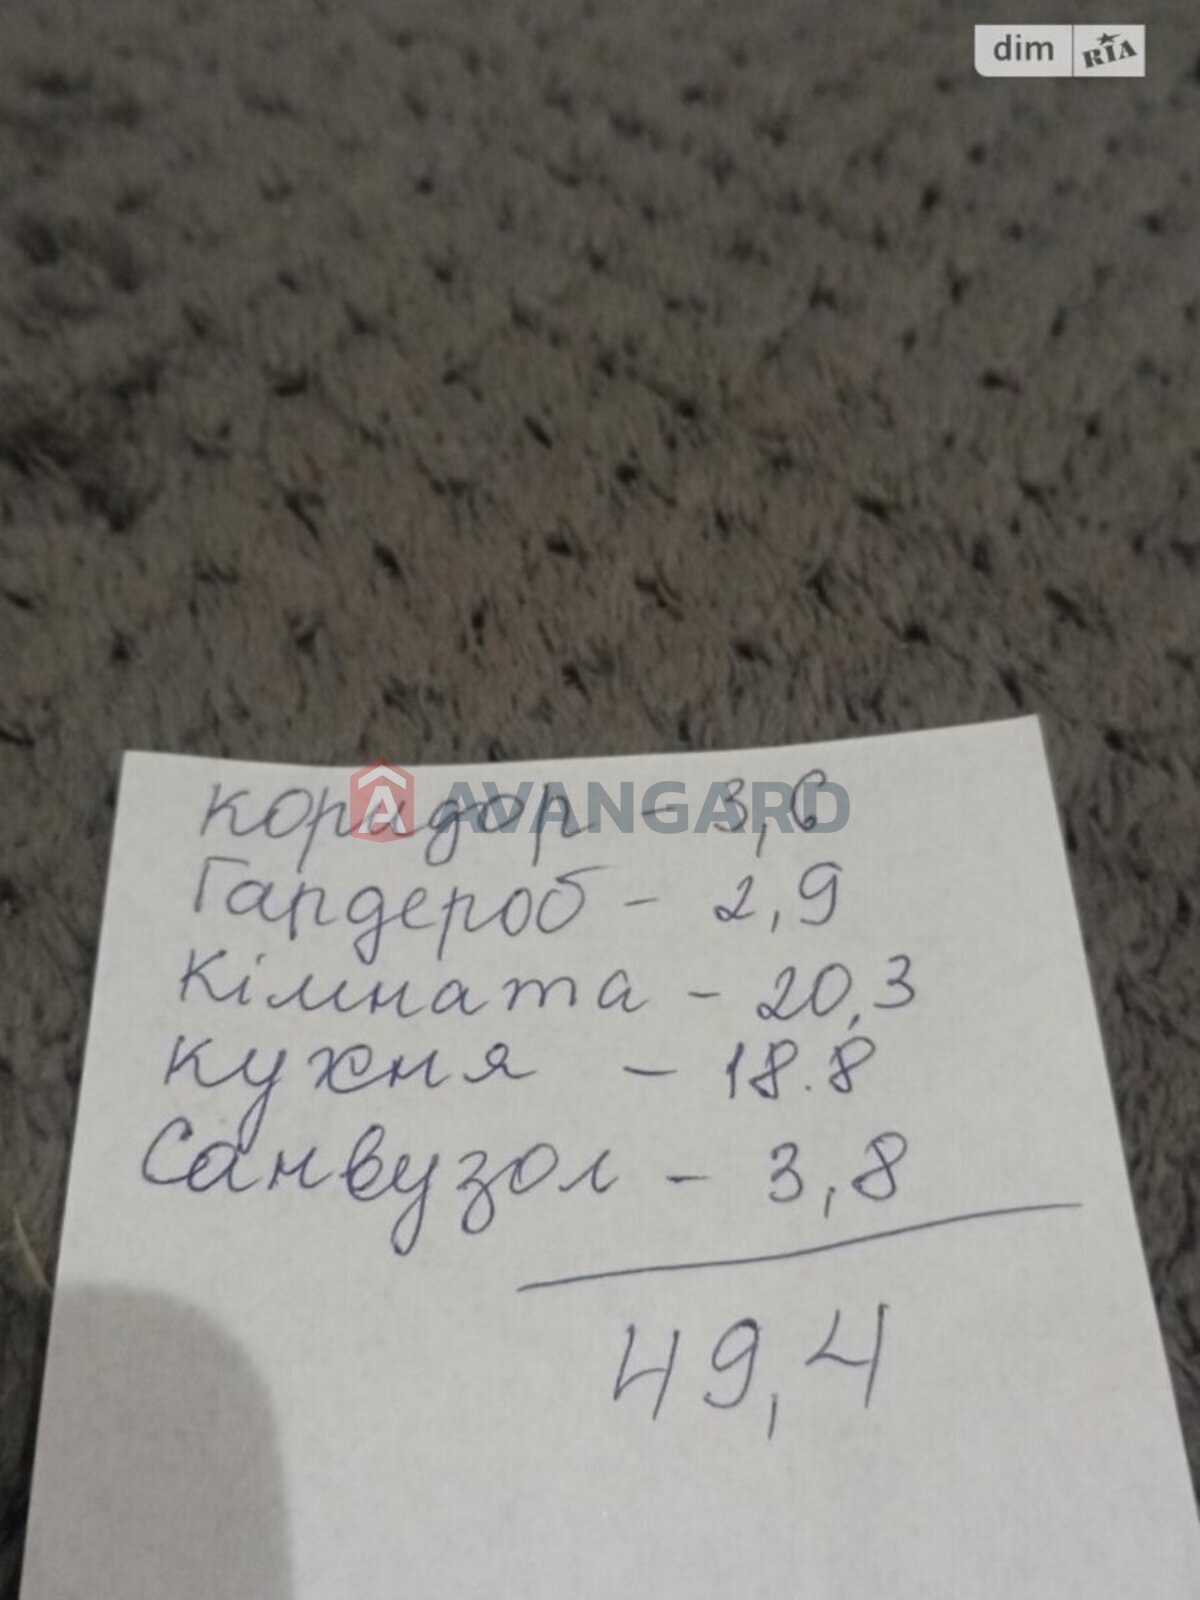 dim RIA
AVANGARD
коридор - 3,6
Гардероб - 2,9
Кімната - 20,3
кухня - 18.8
Санвузол - 3,8
49,4